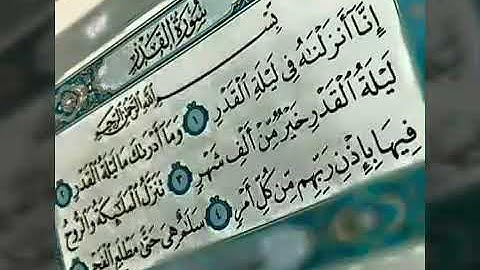 سُورَةُ الْقَدْرِ
بِسْمِ اللَّهِ الرَّحْمَٰنِ الرَّحِيمِ
إِنَّا أَنزَلْنَٰهُ فِي لَيْلَةِ الْقَدْرِ ١ وَمَا أَدْرَىٰكَ مَا لَيْلَةُ الْقَدْرِ ٢
لَيْلَةُ الْقَدْرِ خَيْرٌ مِّنْ أَلْفِ شَهْرٍ ٣ تَنَزَّلُ الْمَلَٰٓئِكَةُ وَالرُّوحُ
فِيهَا بِإِذْنِ رَبِّهِم مِّن كُلِّ أَمْرٍ ٤ سَلَٰمٌ هِيَ حَتَّىٰ مَطْلَعِ الْفَجْرِ